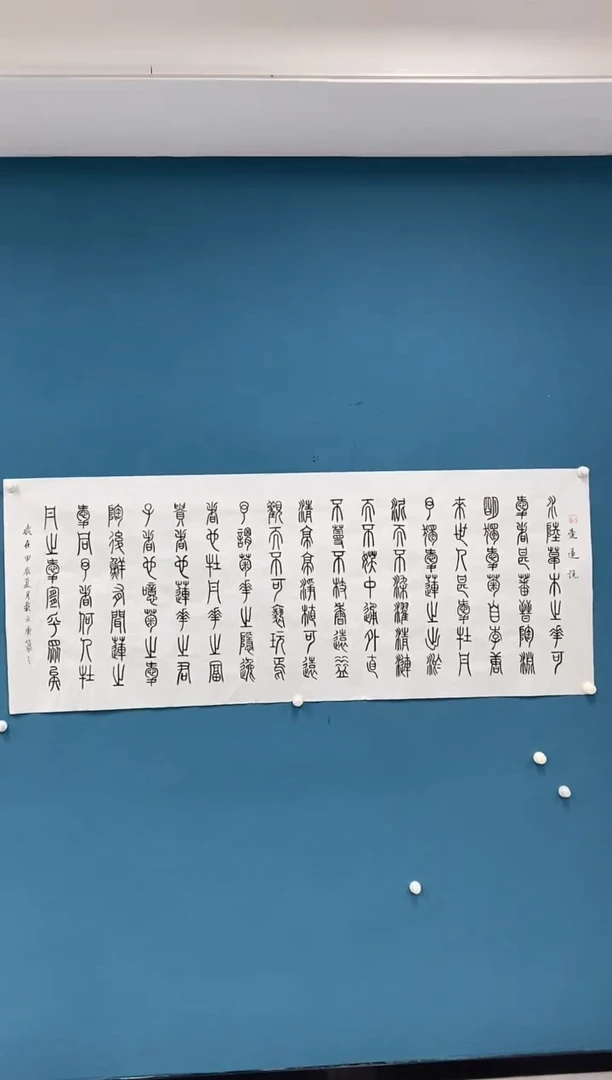 愛蓮說
水陸草木之華可
愛者甚蕃晉陶淵
明獨愛菊自李唐
來世人甚愛牡丹
予獨愛蓮之出淤
泥而不染濯清漣
而不妖中通外直
不蔓不枝香遠益
清亭亭淨植可遠
觀而不可褻玩焉
予謂菊華之隱逸
者也牡丹華之富
貴者也蓮華之君
子者也噫菊之愛
陶後鮮有聞蓮之
愛同予者何人牡
丹之愛宜乎眾矣
歲在甲辰夏月